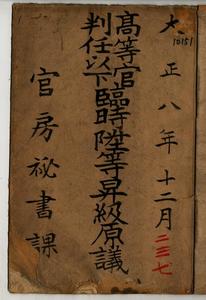 大正八年十二月
二三七
10151
高等官臨時陞等昇級原議
判任以下
官房祕書課